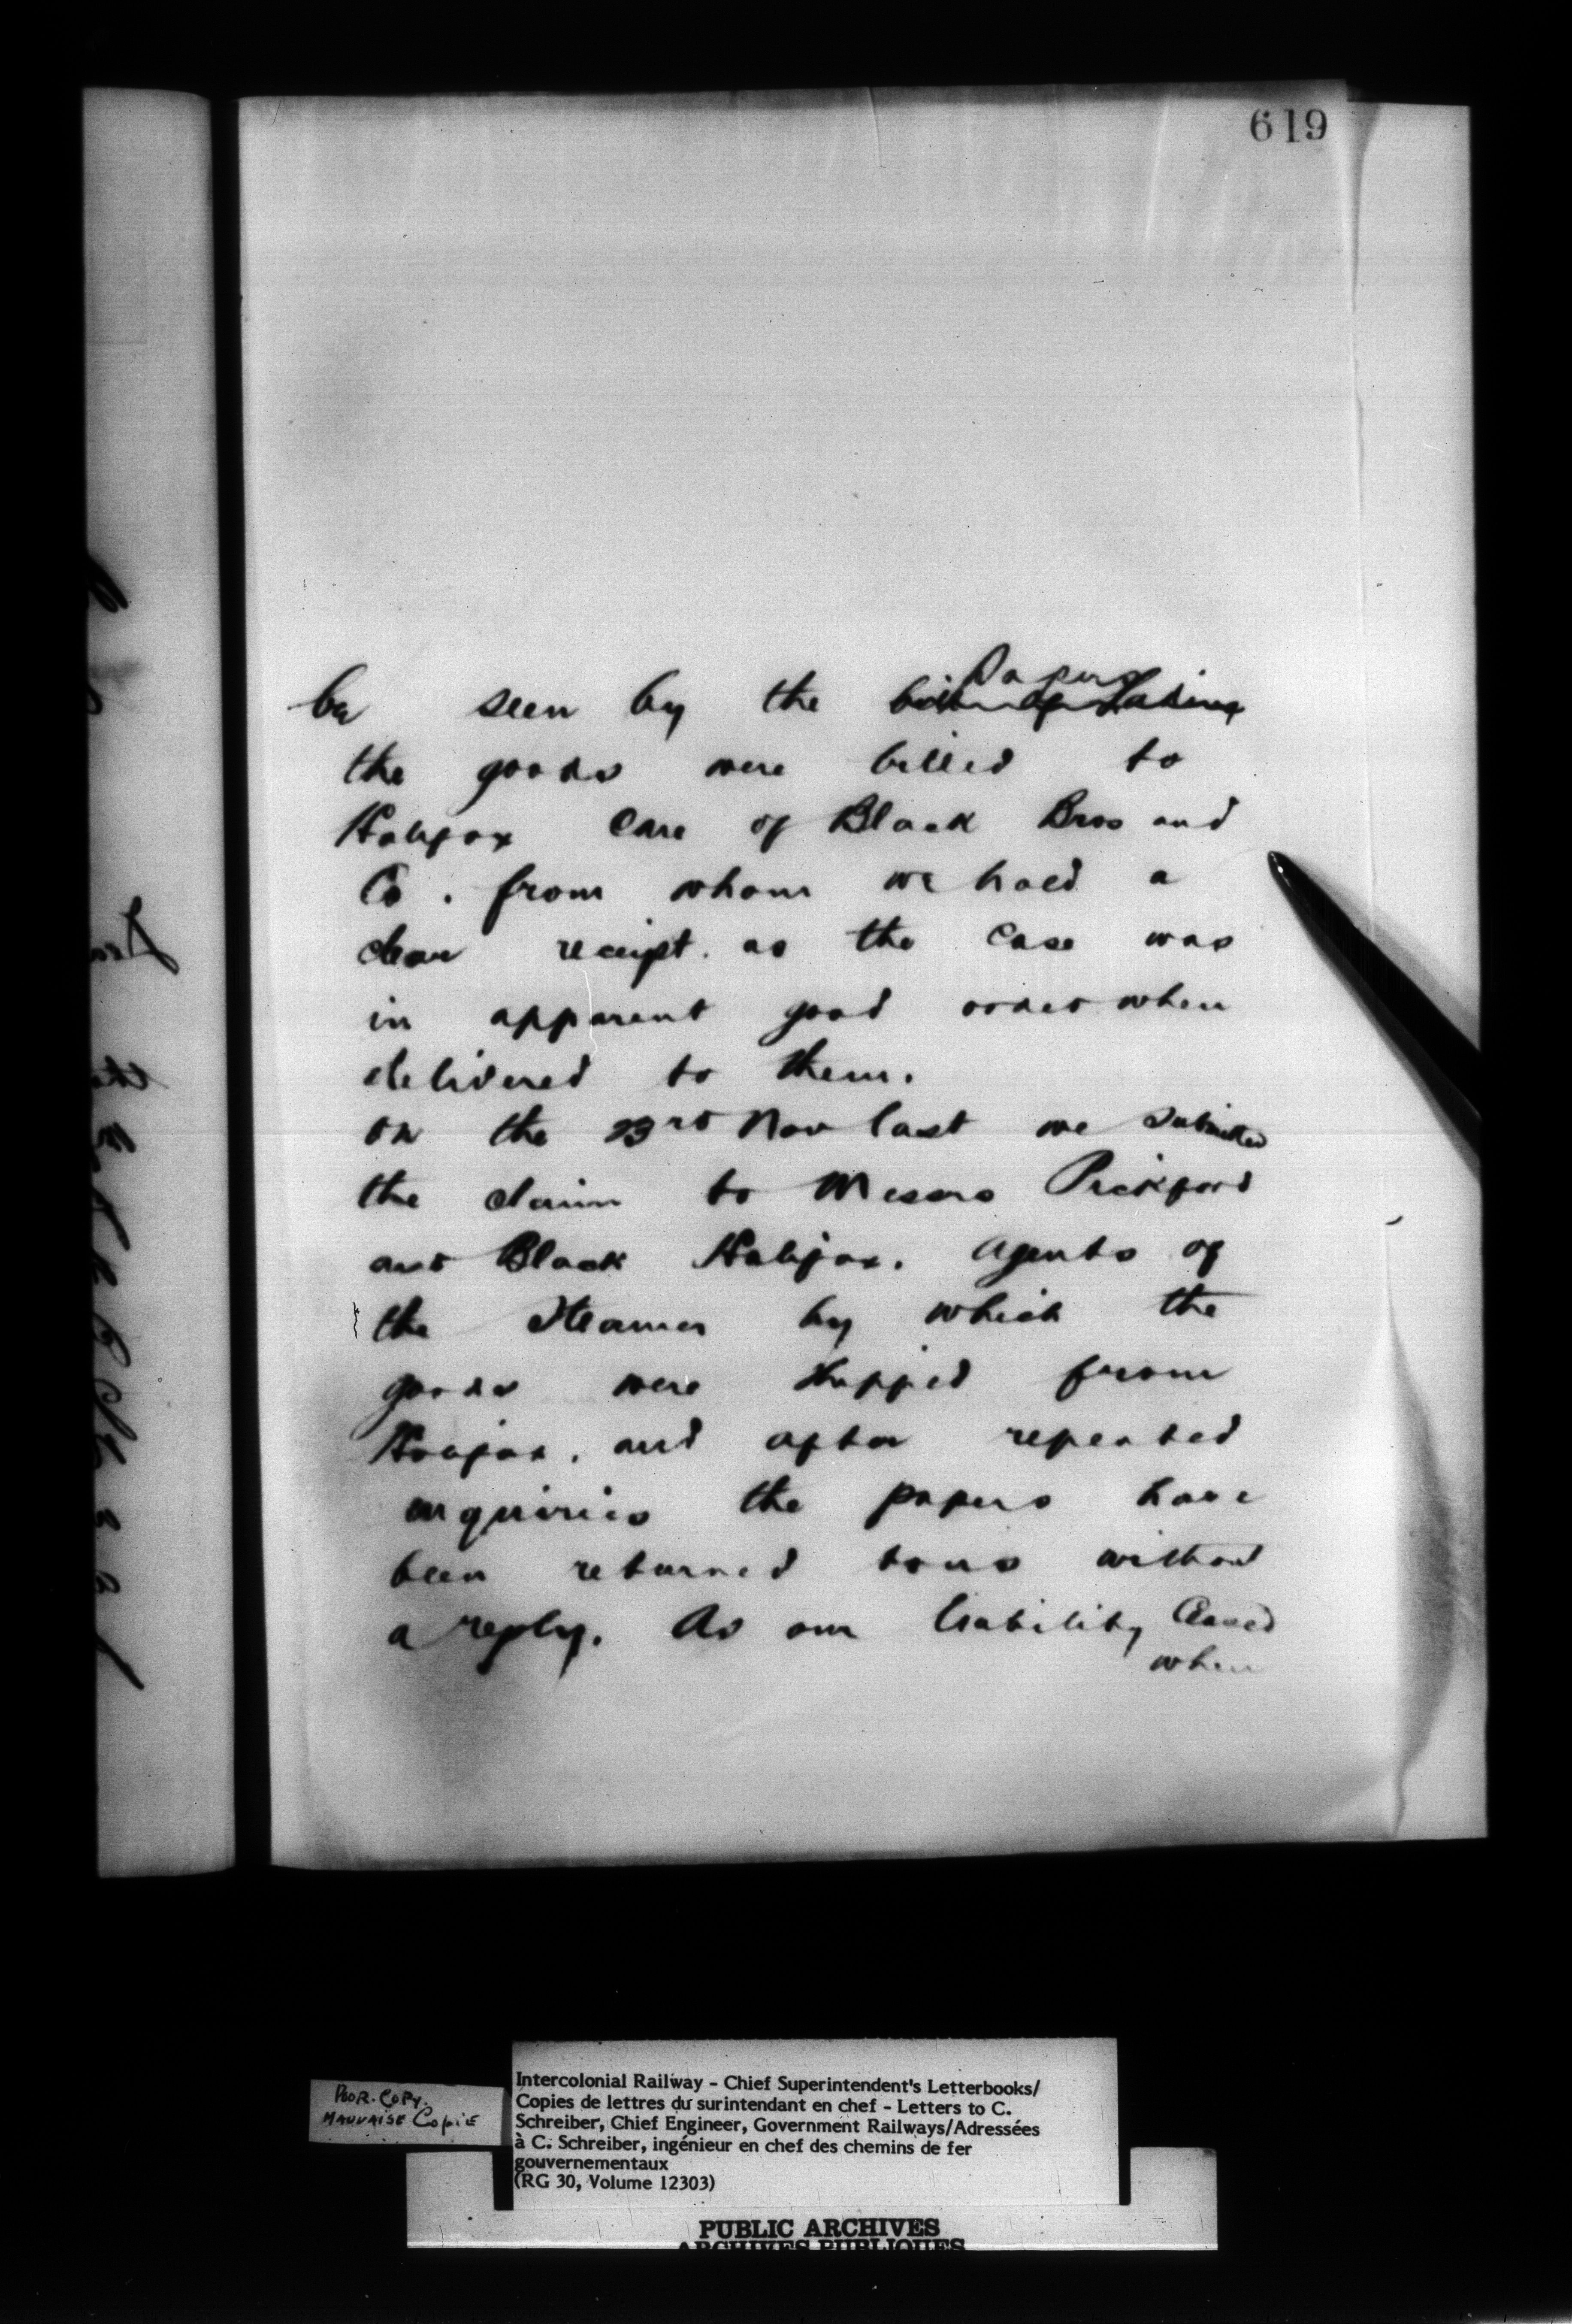 619
be seen by the Papers
the goods were billed to
Halifax Care of Black Bros and
Co. from whom we hold a
clear receipt. as the Case was
in apparent good order when
delivered to them.
On the 23rd Nov last we submitted
the claim to Messrs Pickford
and Black Halifax. Agents of
the Steamer by which the
goods were shipped from
Halifax. and after repeated
inquiries the papers have
been returned to us without
a reply. As our liability Ceased
when
POOR. COPY.
MAUVAISE COPIE
Intercolonial Railway - Chief Superintendent's Letterbooks/
Copies de lettres du surintendant en chef - Letters to C.
Schreiber, Chief Engineer, Government Railways/Adressées
à C. Schreiber, ingénieur en chef des chemins de fer
gouvernementaux
(RG 30, Volume 12303)
PUBLIC ARCHIVES
ARCHIVES PUBLIQUES